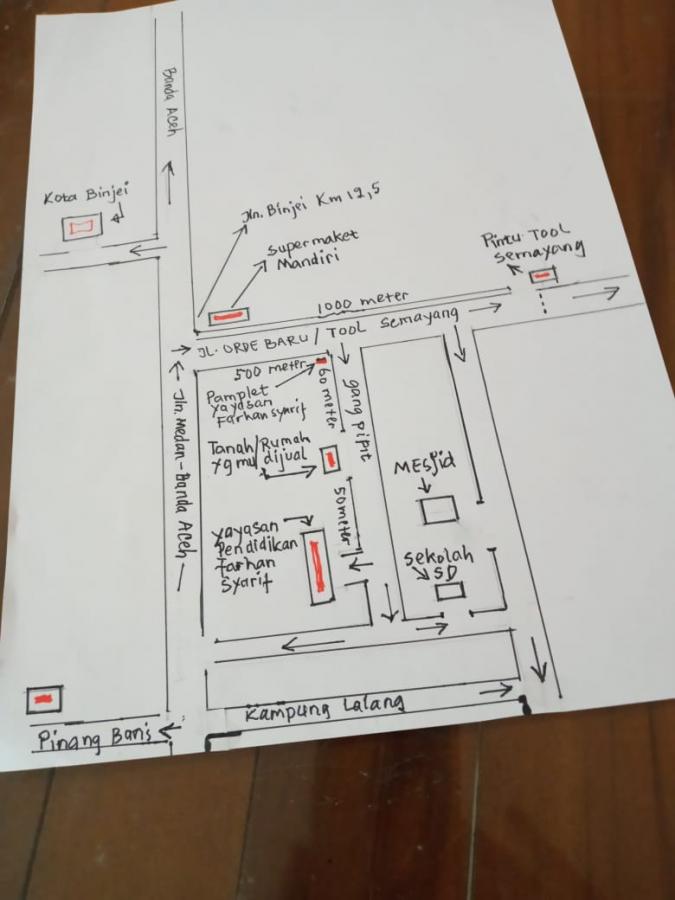 Banda Aceh
Kota Binjei
Jln. Binjei Km 12,5
Supermaket
Mandiri
Pintu TOOL
semayang
1000 meter
JL. ORDE BARU / TOOL Semayang
500 meter
Pamplet
yayasan
Farhan syarif
60 meter
gang pipit
Tanah/Rumah
yg mu dijual
MESjid
50 meter
Jln. Medan-Banda Aceh
yayasan
Pendidikan
Farhan
Syarif
Sekolah
SD
Kampung Lalang
Pinang Baris